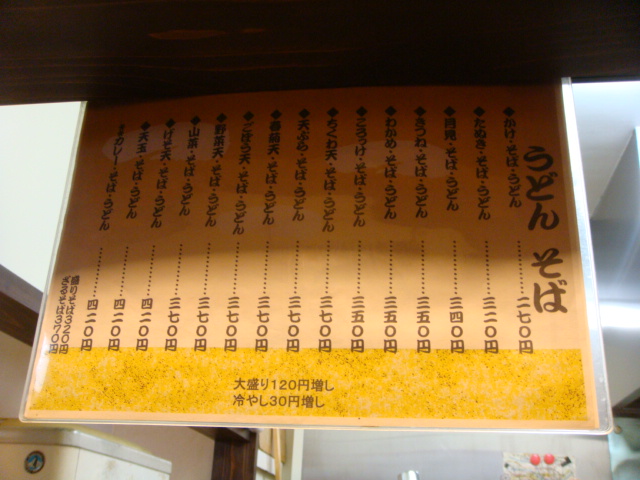 うどん そば
◆かけ・そば・うどん………二七〇円
◆たぬき・そば・うどん………三二〇円
◆月見・そば・うどん………三四〇円
◆きつね・そば・うどん………三五〇円
◆わかめ・そば・うどん………三五〇円
◆ころっけ・そば・うどん………三五〇円
◆ちくわ天・そば・うどん………三七〇円
◆天ぷら・そば・うどん………三七〇円
◆春菊天・そば・うどん………三七〇円
◆ごぼう天・そば・うどん………三七〇円
◆野菜天・そば・うどん………三七〇円
◆山菜・そば・うどん………三七〇円
◆げそ天・そば・うどん………三七〇円
◆天玉・そば・うどん………四二〇円
カレー・そば・うどん………四二〇円
四二〇円
盛りそば320円
ざるそば370円
大盛り120円増し
冷やし30円増し